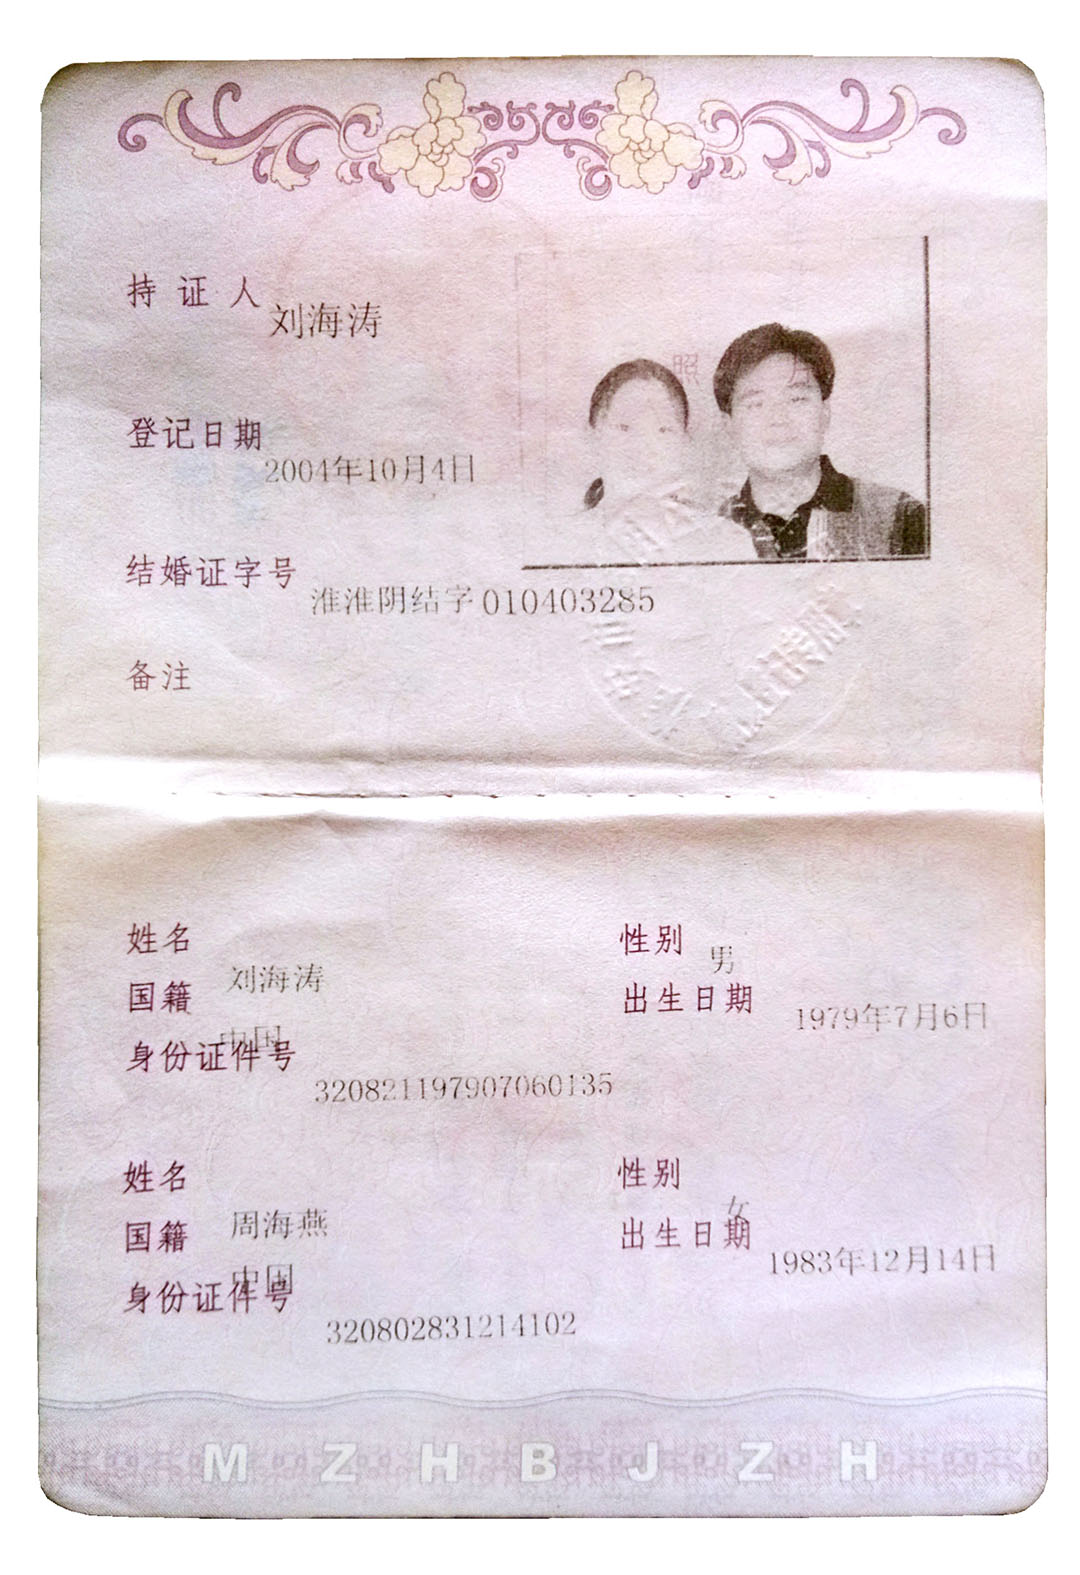 持证人 刘海涛
照 片
登记日期 2004年10月4日
结婚证字号 淮淮阴结字010403285
备注
姓名 刘海涛 性别 男
国籍 中国 出生日期 1979年7月6日
身份证件号 320821197907060135
姓名 周海燕 性别 女
国籍 中国 出生日期 1983年12月14日
身份证件号 320802831214102
M Z H B J Z H